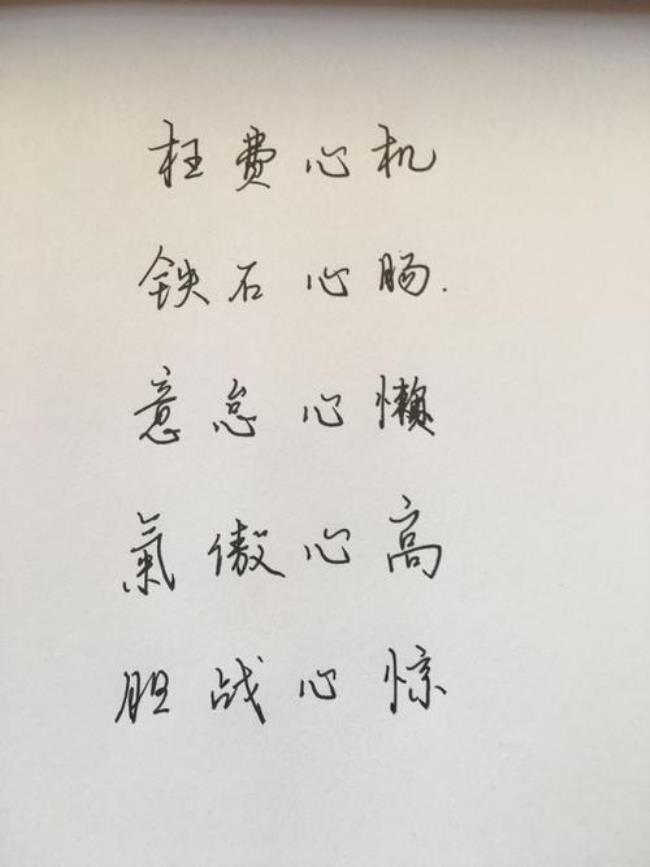 枉费心机
铁石心肠.
意怠心懒
氣傲心高
胆战心惊